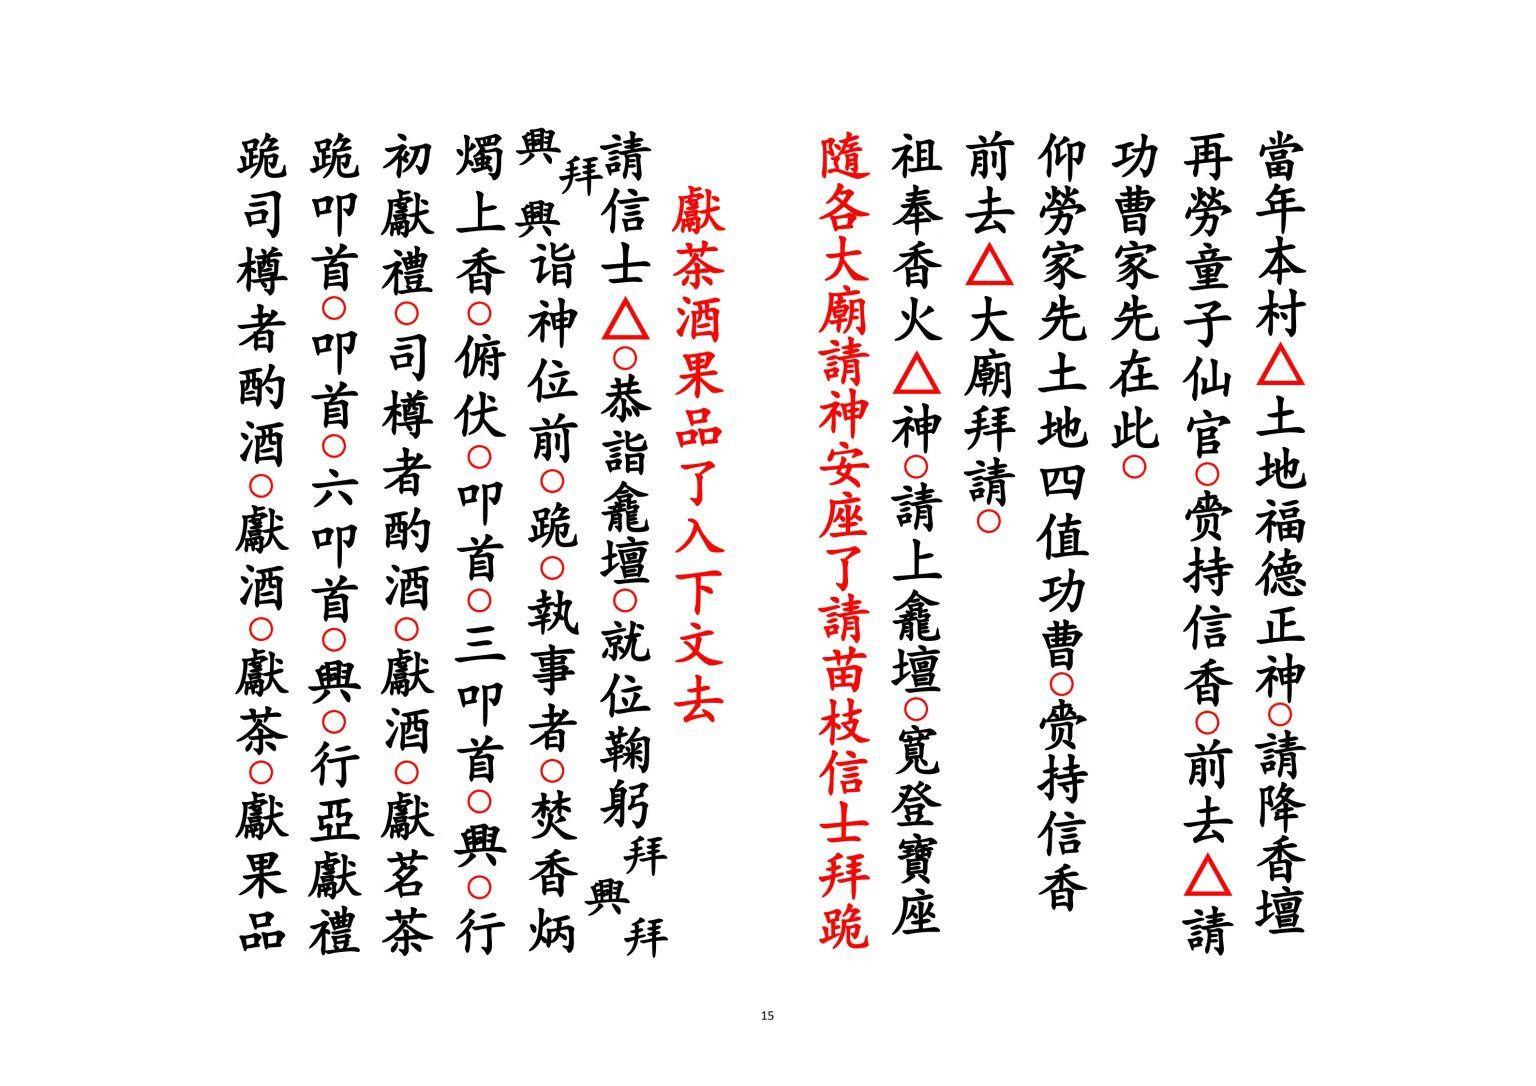 當年本村△土地福德正神○請降香壇
再勞童子仙官○赍持信香○前去△請
功曹家先在此○
仰勞家先土地四值功曹○赍持信香
前去△大廟拜請○
祖奉香火△神○請上龕壇○寬登寶座
隨各大廟請神安座了請苗枝信士拜跪
獻茶酒果品了入下文去
請信士△○恭詣龕壇○就位鞠躬拜興拜
興拜興诣神位前○跪○執事者○焚香炳
燭上香○俯伏○叩首○三叩首○興○行
初獻禮○司樽者酌酒○獻酒○獻茗茶
跪叩首○叩首○六叩首○興○行亞獻禮
跪司樽者酌酒○獻酒○獻茶○獻果品
15